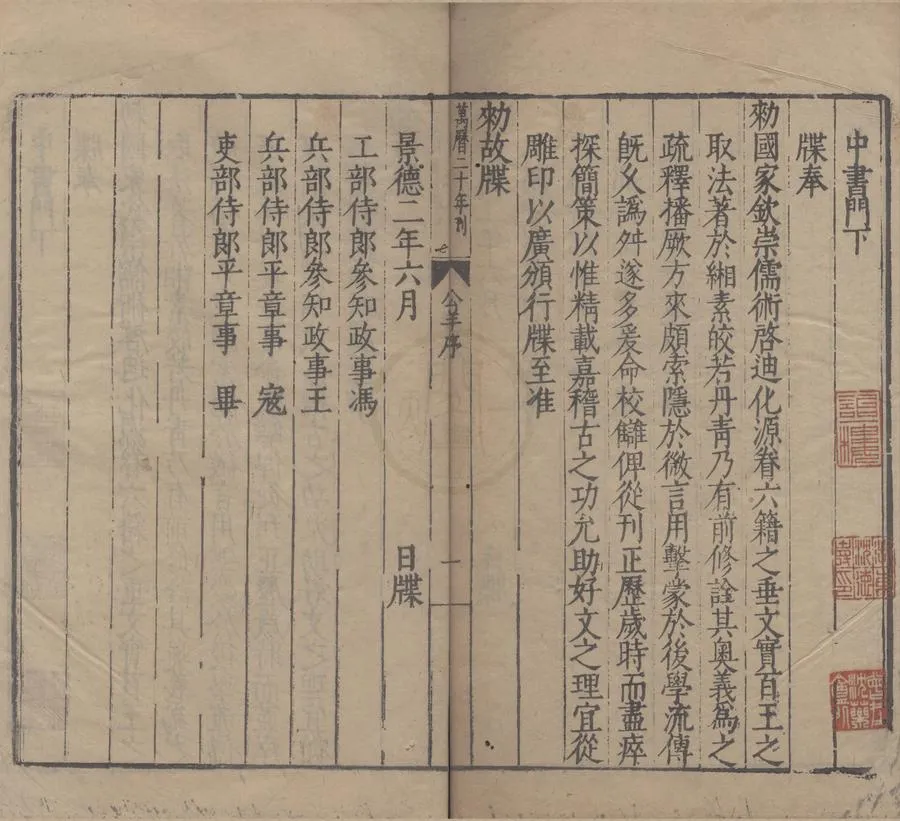 中書門下
牒奉
勑國家欽崇儒術啓迪化源眷六籍之垂文實百王之
取法著於緗素皎若丹青乃有前修詮其奥義為之
疏釋播厥方來頗索隱於微言用擊蒙於後學流傳
旣久譌舛遂多爰命校讎俾從刊正歷歲時而盡瘁
探簡策以惟精載嘉稽古之功允助好文之理宜從
雕印以廣頒行牒至准
勑故牒
萬曆二十年刊
公羊序
一
景德二年六月 日牒
工部侍郎參知政事馮
兵部侍郎參知政事王
兵部侍郎平章事 寇
吏部侍郎平章事 畢